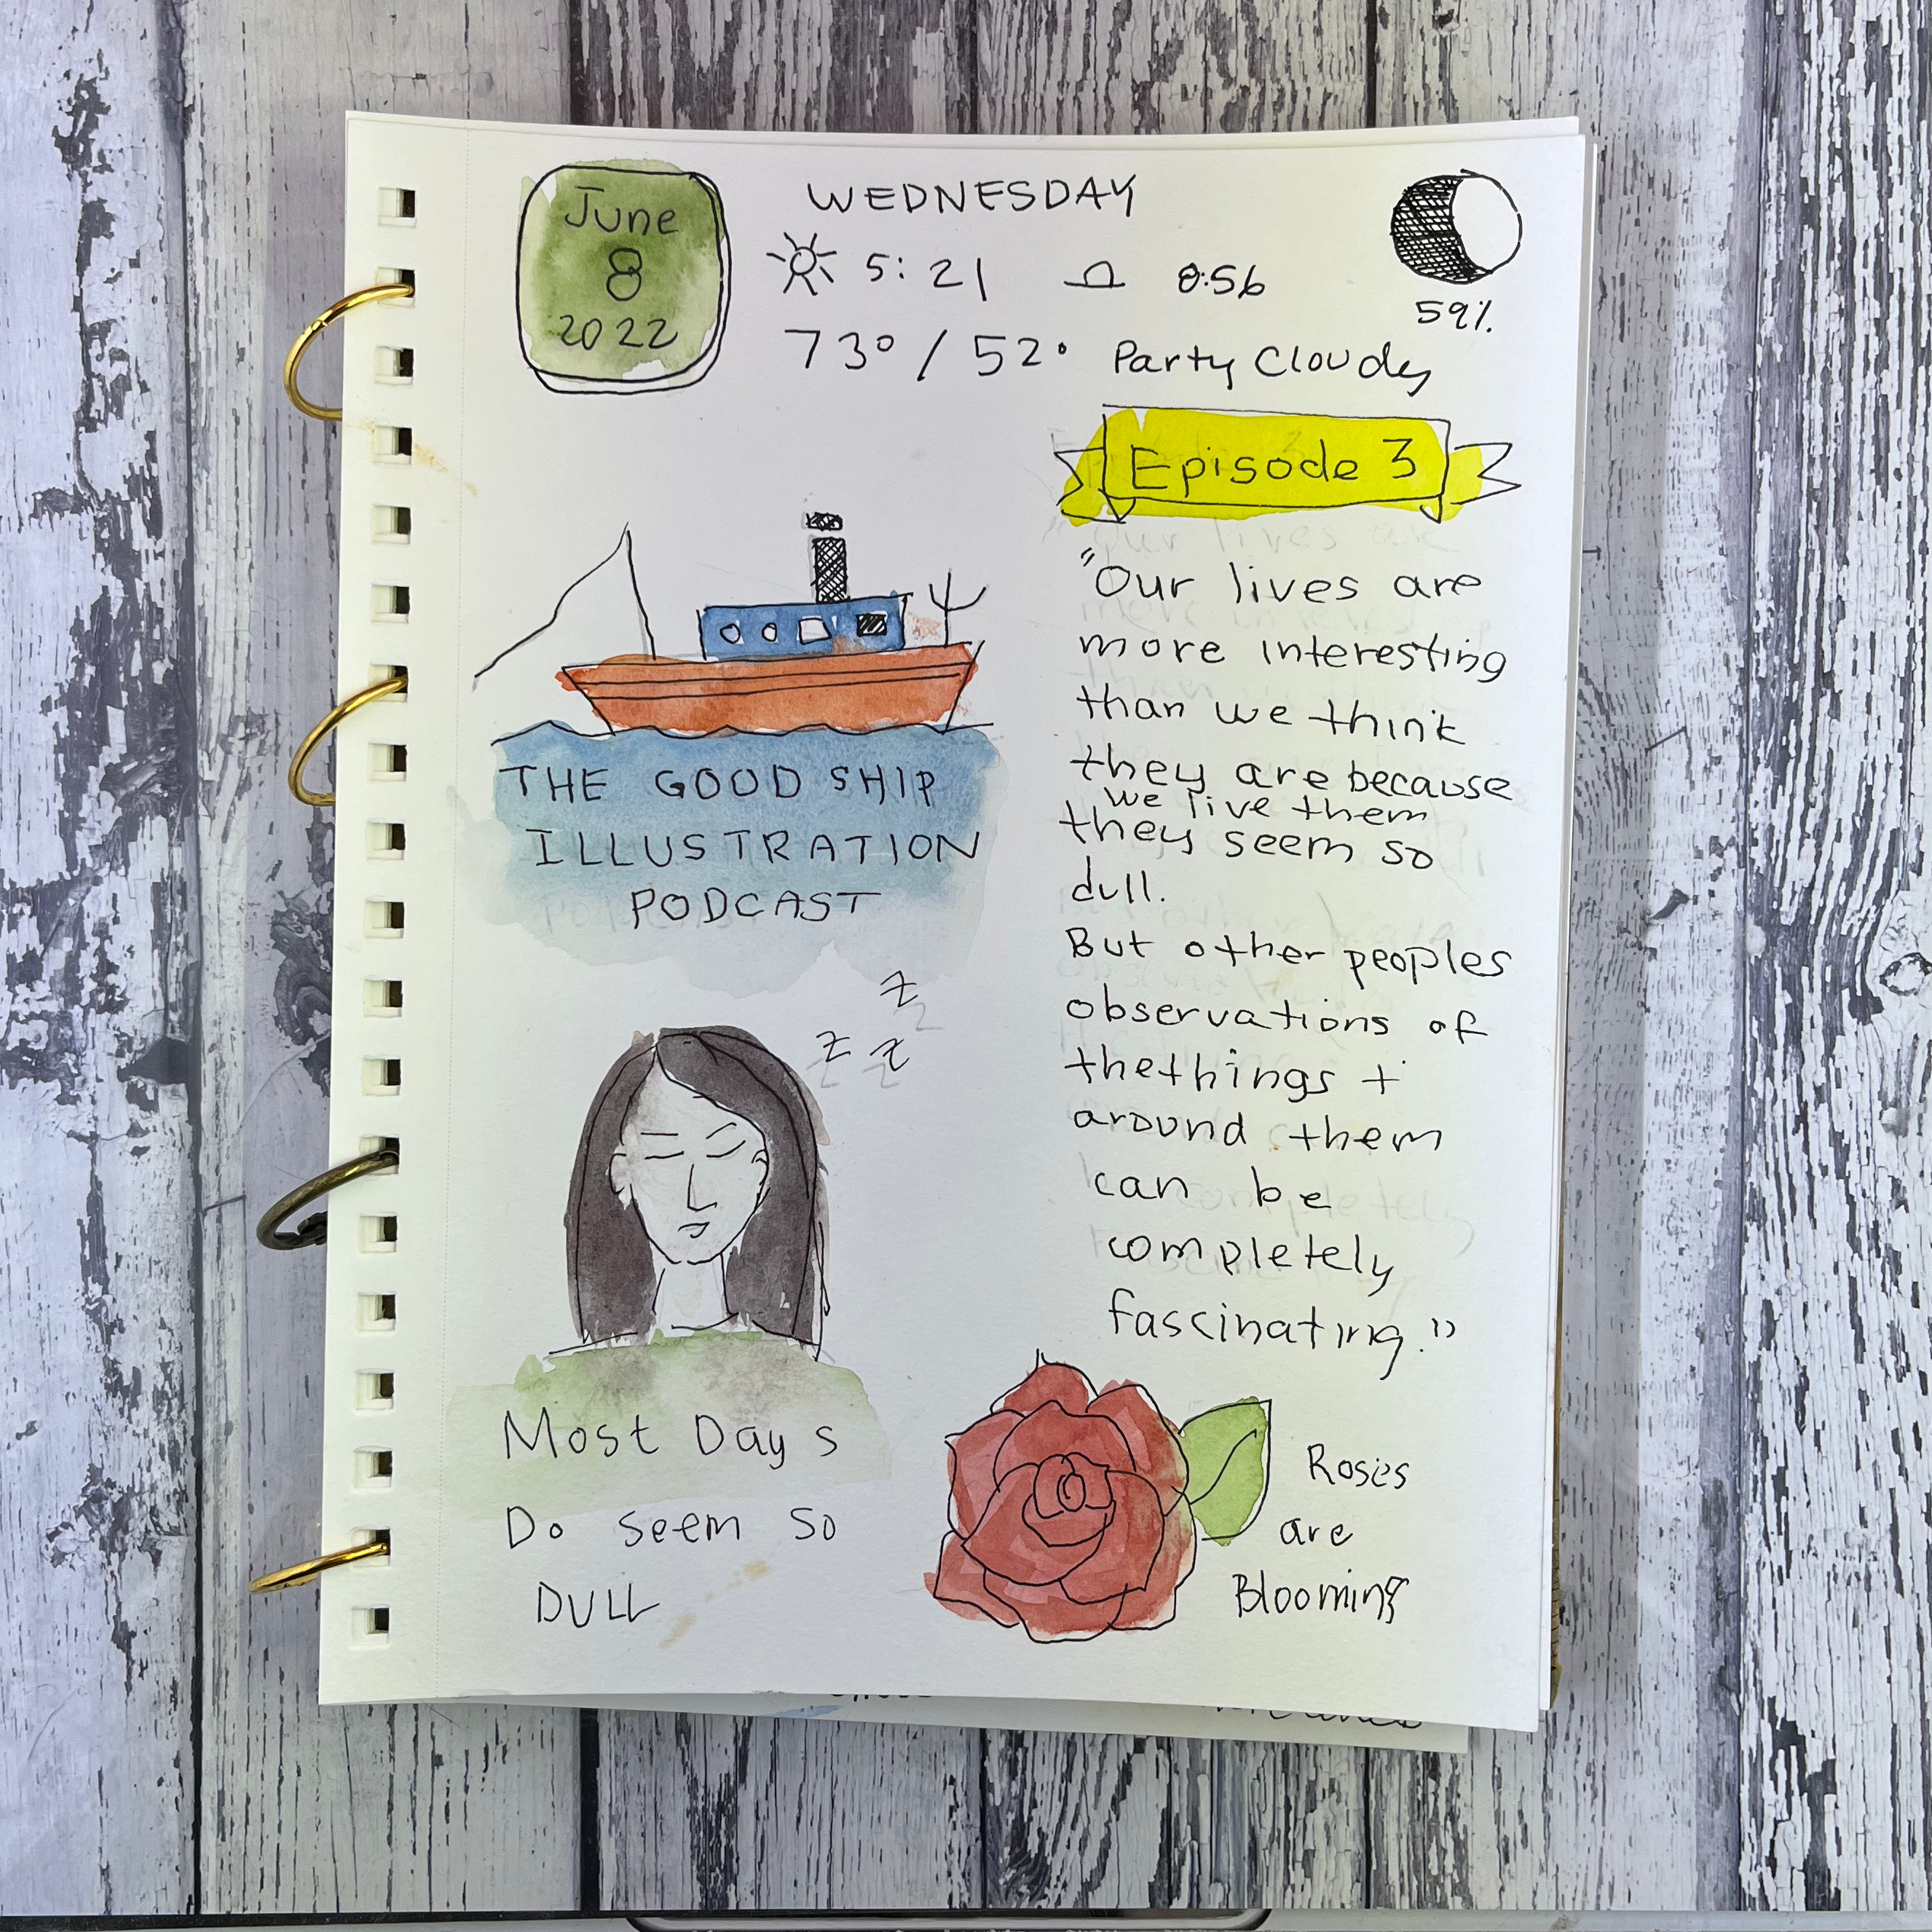 June
8
2022
WEDNESDAY
5:21 8:56
73° / 52° Party Cloudy
59%
Episode 3
"Our lives are
more interesting
than we think
they are because
we live them
they seem so
dull.
But other peoples
observations of
the things +
around them
can be
completely
fascinating."
THE GOOD SHIP
ILLUSTRATION
PODCAST
z
z z
Most Days
Do seem so
DULL
Roses
are
Blooming